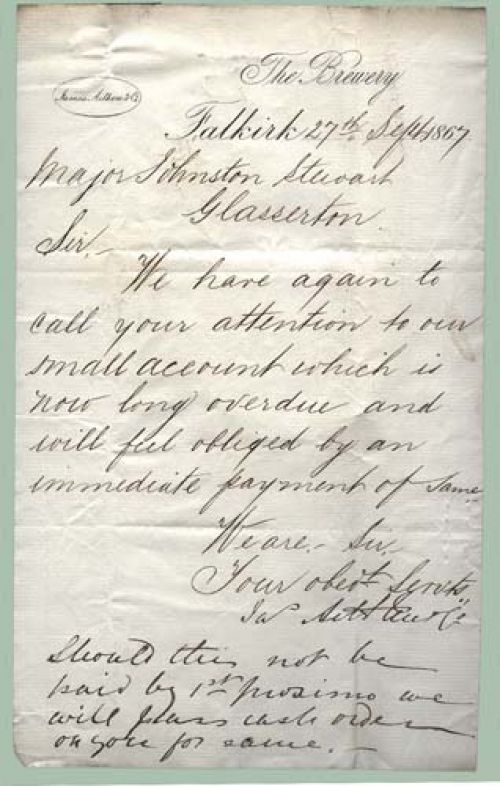 The Brewery
James Aitken & Co
Falkirk 27th Sept 1867
Major Johnston Stewart
Glasserton
Sir,-
We have again to
call your attention to our
small account which is
now long overdue and
will feel obliged by an
immediate payment of same
We are,- Sir,-
Your obedt Servts
Jas Aitken & Co
Should this not be
paid by 1st proximo we
will pass cash order
on you for same.-